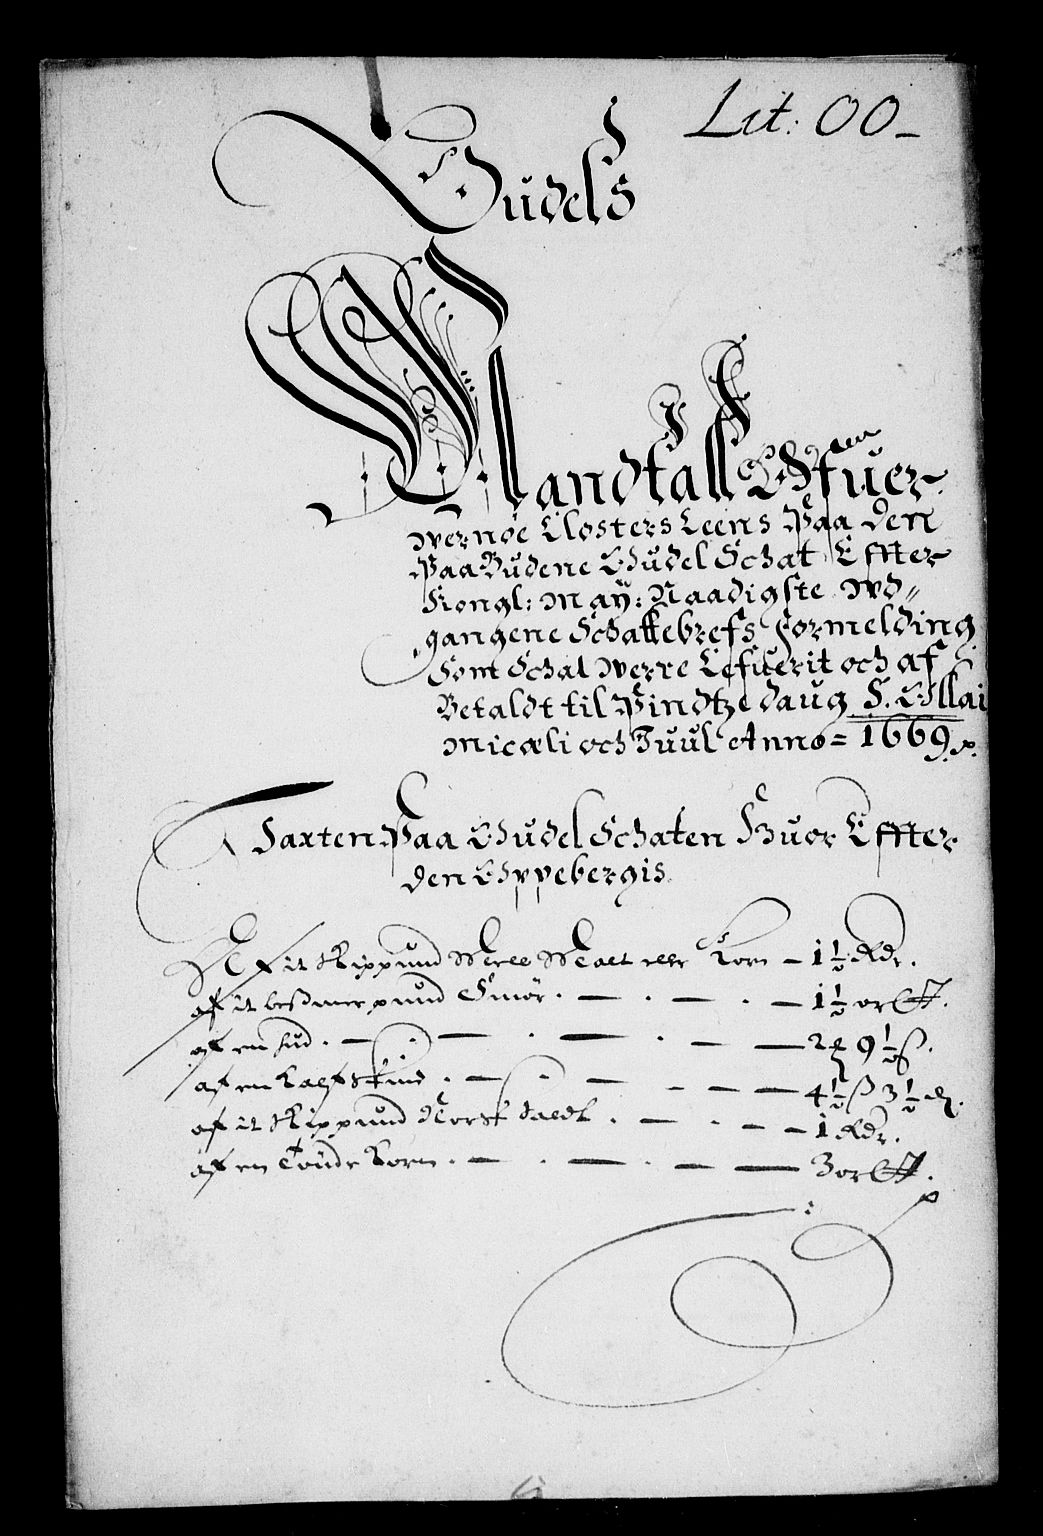 Lit: OO
Gudels
Mandtall Offuer
Wernøe Closters Leens Paa den
Paa Budene Gudel Schat Effter
Kongl: May: Naadigste Wd=
gangene Schattebrefs formelding
Som Schal Werre Lefuerit och af
Betaldt til Pindtzedaug S. Ollai
Micæli och Juul Anno = 1669.
Taxten Paa Gudel Schaten Huor Effter
den Oppebergis
Af it Skippund Meell Malt eller Korn – 1½ Rdr.
af it beszmer pund Smør. – 1½ ort.
af en hud. – 2 9½ ß.
af en Kalfskind. – 4½ ß 3½ d.
af it Skippund Torsk – 1 Rdr.
af en Tønde Korn. – 3 ort.